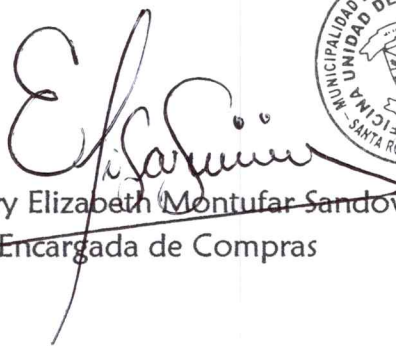 MUNICIPALIDAD
OFICINA UNIDAD DE
SANTA RO
y Elizabeth Montufar Sandov
Encargada de Compras